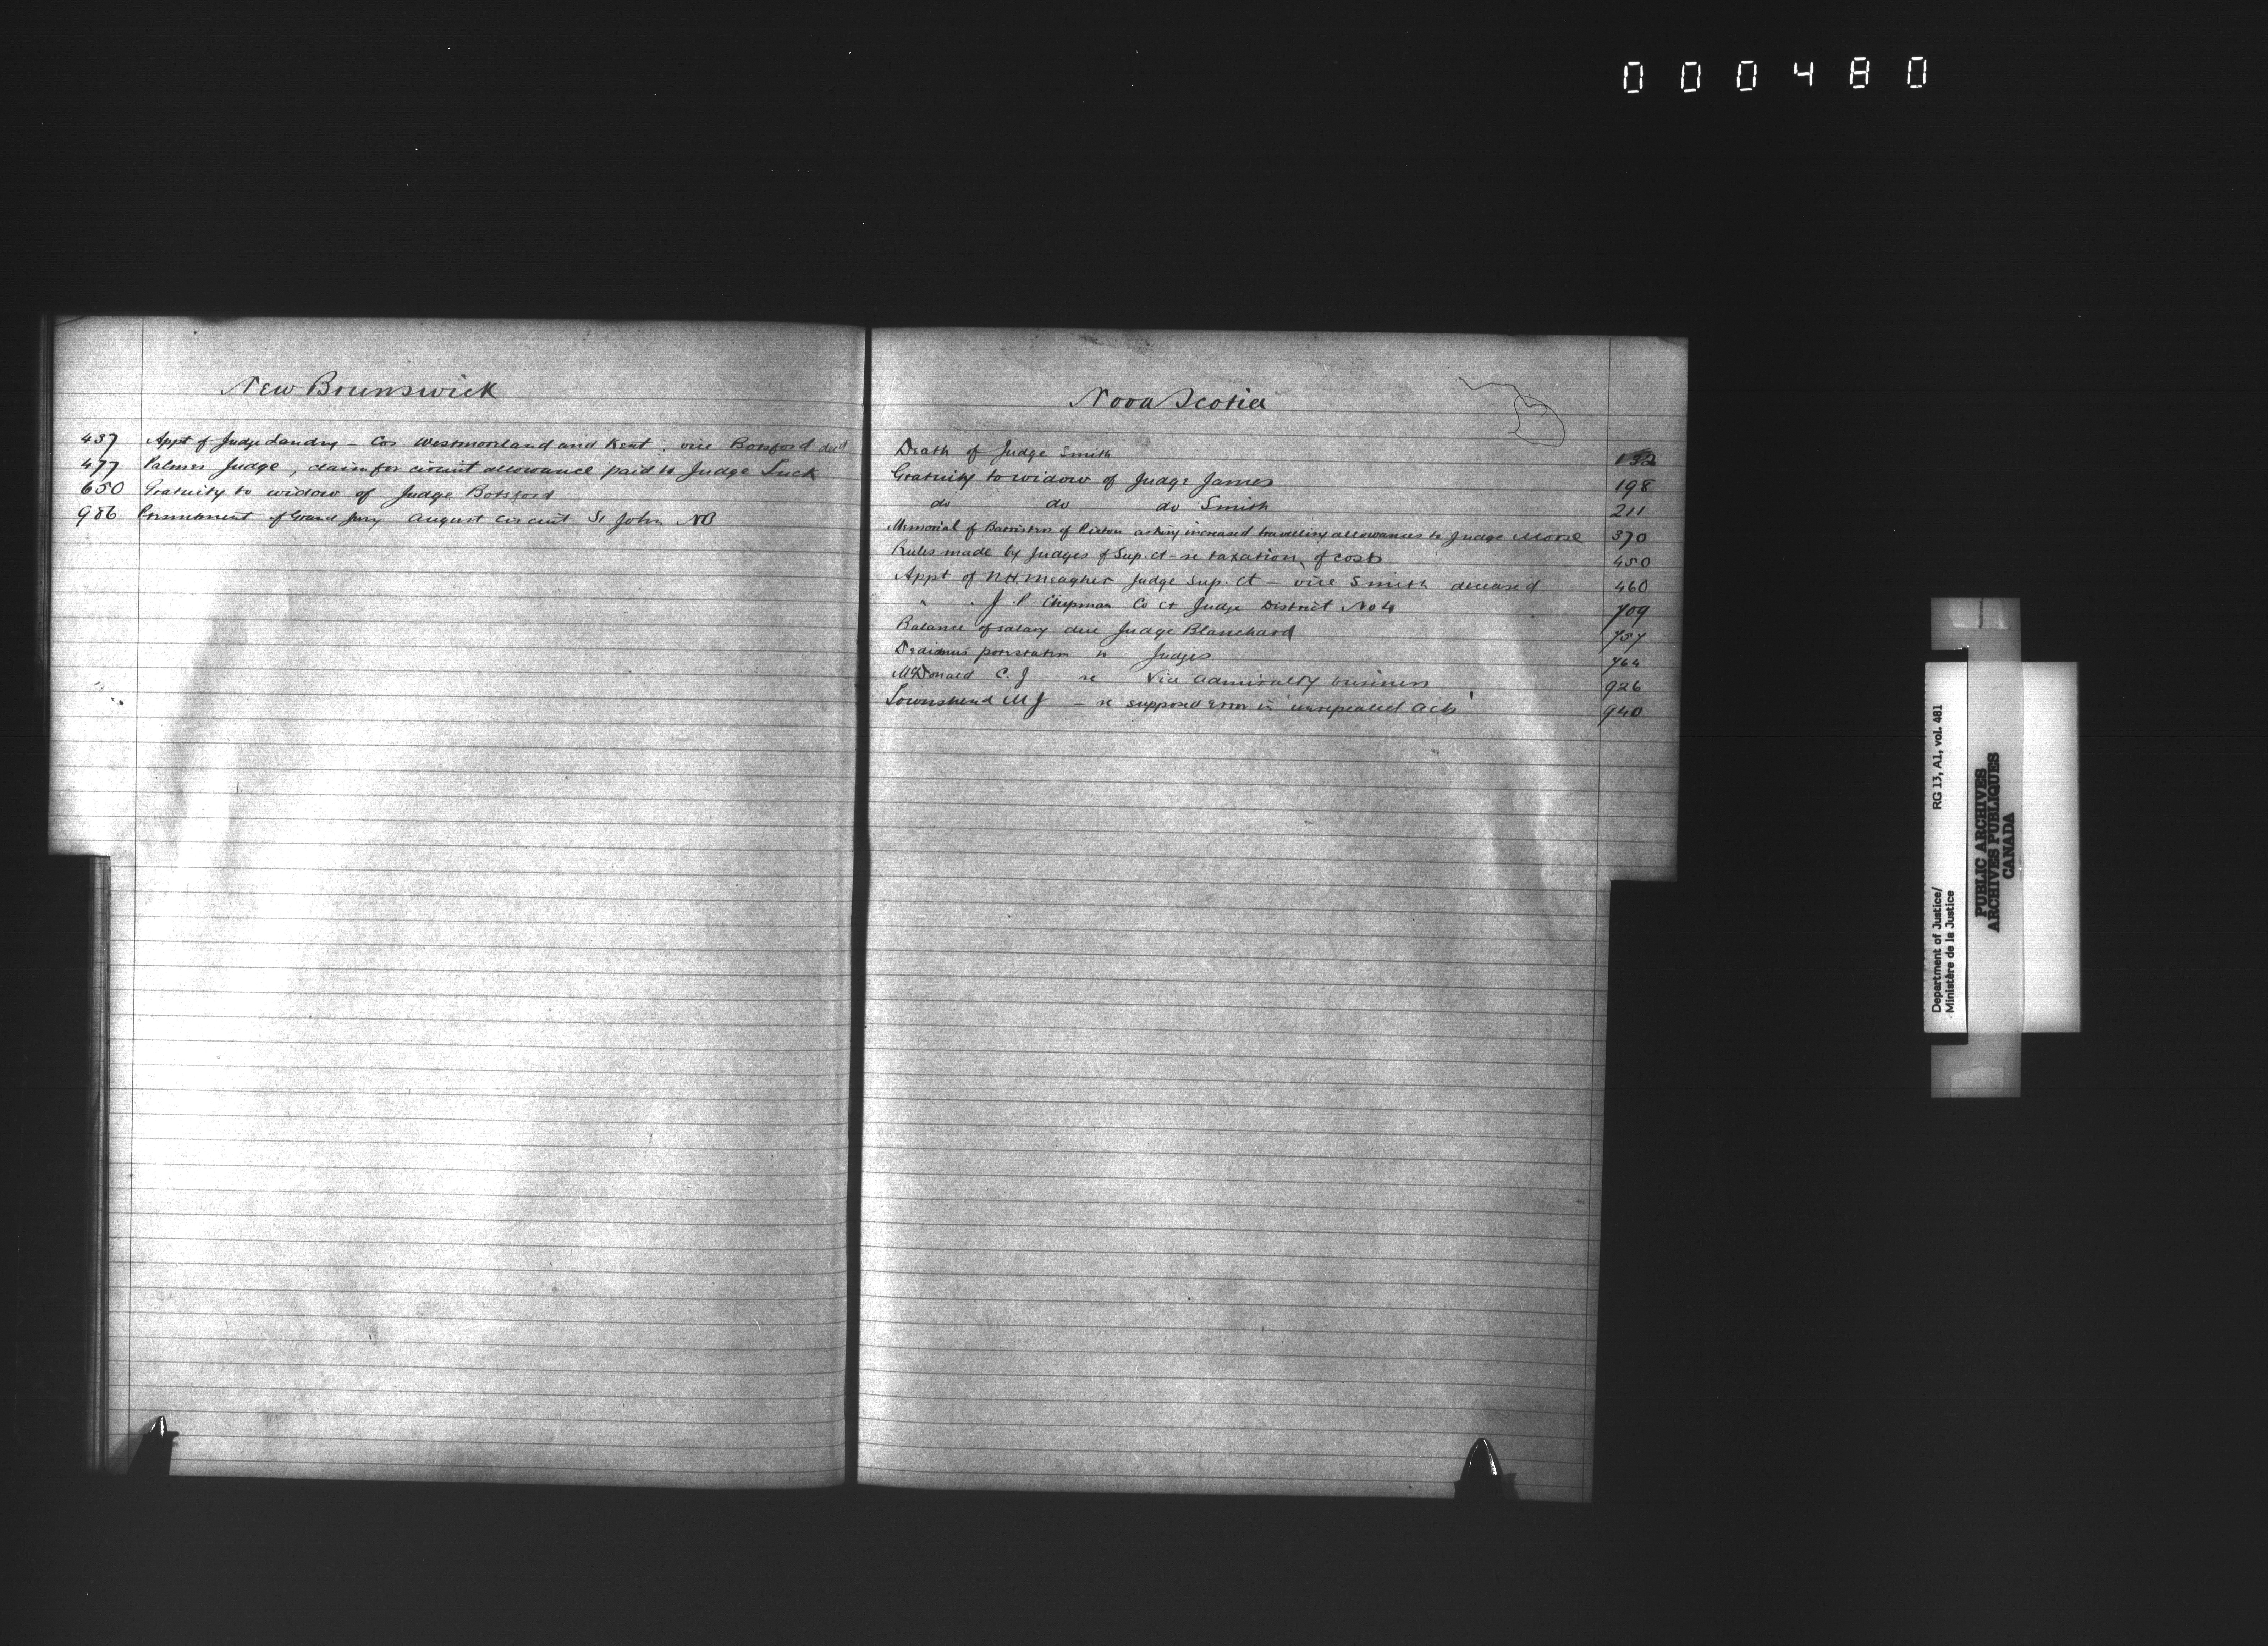 000480
New Brunswick
437 Appt of Judge Landry – Cos Westmoorland and Kent: vice Botsford decd
477 Palmer Judge, claim for circuit allowance paid to Judge Tuck
650 Gratuity to widow of Judge Botsford
986 Presentment of Grand Jury August circuit St John NB
Nova Scotia
Death of Judge Smith 132
Gratuity to widow of Judge James 198
do do do Smith 211
Memorial of Barristers of Pictou asking increased travelling allowances to Judge Morse 370
Rules made by Judges of Sup. Ct – re taxation of costs 450
Appt of N.H. Meagher Judge Sup. Ct – vice Smith deceased 460
" . J. P. Chipman Co Ct Judge District No 4 709
Balance of salary due Judge Blanchard 757
Dedimus potestatem to Judges 764
McDonald C. J re Vice admiralty business 926
Townshend MJ – re supposed error in unrepealed acts 940
Department of Justice/ RG 13, A1, vol. 481
Ministère de la Justice
PUBLIC ARCHIVES
ARCHIVES PUBLIQUES
CANADA